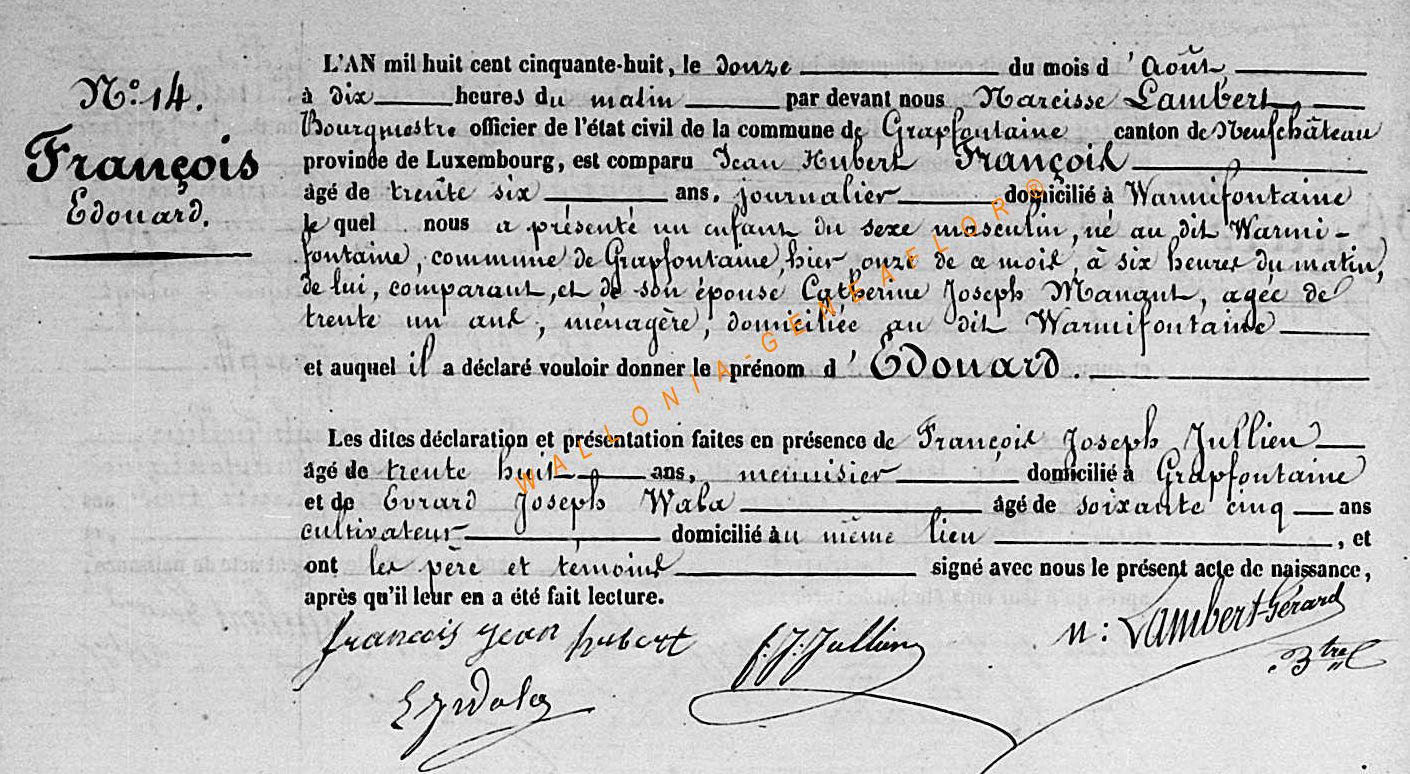 N° 14.
François
Edouard.
L'AN mil huit cent cinquante-huit, le douze du mois d'Août,
à dix heures du matin par devant nous Narcisse Lambert,
Bourgmestre officier de l'état civil de la commune de Grapfontaine canton de Neufchâteau
province de Luxembourg, est comparu Jean Hubert François
âgé de trente six ans, journalier domicilié à Warmifontaine
le quel nous a présenté un enfant du sexe masculin, né au dit Warmi-
fontaine, commune de Grapfontaine, hier onze de ce mois, à six heures du matin,
de lui, comparant, et de son épouse Catherine Joseph Mangut, agée de
trente un ans, ménagère, domiciliée au dit Warmifontaine
et auquel il a déclaré vouloir donner le prénom d'Edouard.
Les dites déclaration et présentation faites en présence de François Joseph Jullien
âgé de trente huit ans, menuisier domicilié à Grapfontaine
et de Evrard Joseph Wala âgé de soixante cinq ans
cultivateur domicilié au même lieu, et
ont les père et témoins signé avec nous le présent acte de naissance,
après qu'il leur en a été fait lecture.
francois jean hubert
f. J. Jullien
N: Lambert-Gérard
B^tre
E J Wala
WALLONIA-GENEAFLOR®